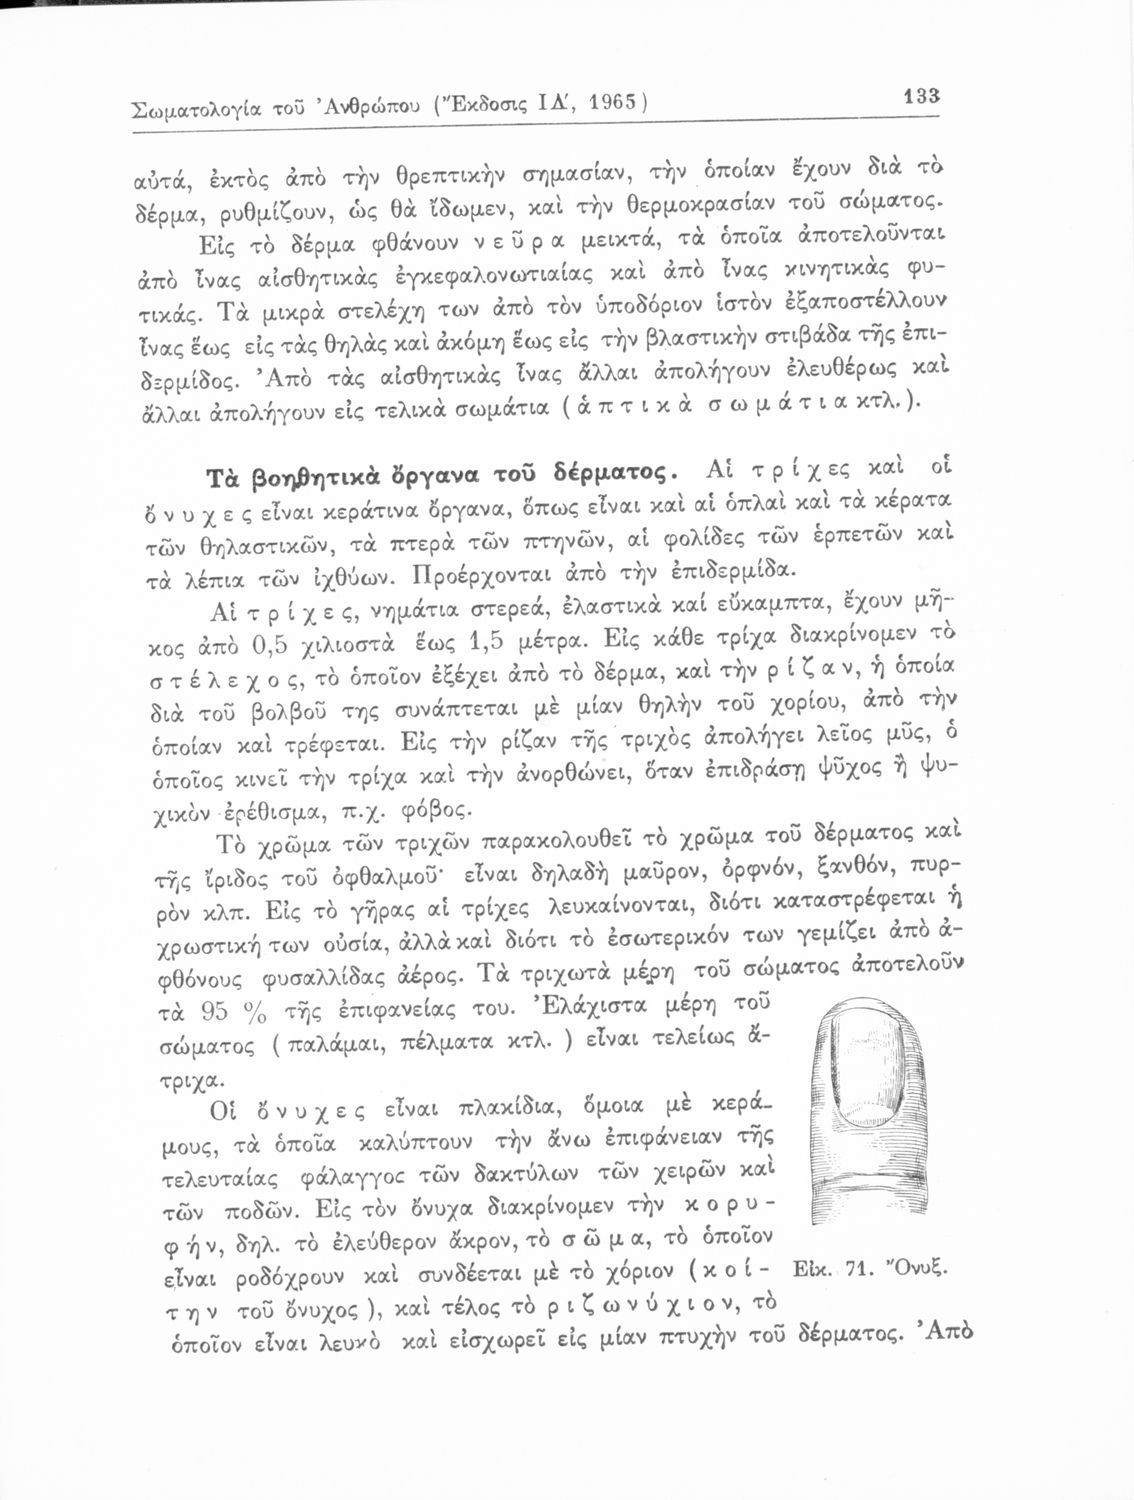 Σωματολογία τοῦ Ἀνθρώπου (Ἔκδοσις ΙΔ', 1965)
133
αὐτά, ἐκτὸς ἀπὸ τὴν θρεπτικὴν σημασίαν, τὴν ὁποίαν ἔχουν διὰ τὸ
δέρμα, ρυθμίζουν, ὡς θὰ ἴδωμεν, καὶ τὴν θερμοκρασίαν τοῦ σώματος.
Εἰς τὸ δέρμα φθάνουν ν ε ῦ ρ α μεικτά, τὰ ὁποῖα ἀποτελοῦνται
ἀπὸ ἶνας αἰσθητικὰς ἐγκεφαλονωτιαίας καὶ ἀπὸ ἶνας κινητικὰς φυ-
τικάς. Τὰ μικρὰ στελέχη των ἀπὸ τὸν ὑποδόριον ἱστὸν ἐξαποστέλλουν
ἶνας ἕως εἰς τὰς θηλὰς καὶ ἀκόμη ἕως εἰς τὴν βλαστικὴν στιβάδα τῆς ἐπι-
δερμίδος. Ἀπὸ τὰς αἰσθητικὰς ἶνας ἄλλαι ἀπολήγουν ἐλευθέρως καὶ
ἄλλαι ἀπολήγουν εἰς τελικὰ σωμάτια ( ἁ π τ ι κ ὰ σ ω μ ά τ ι α κτλ.).
Τὰ βοηθητικὰ ὄργανα τοῦ δέρματος. Αἱ τ ρ ί χ ες καὶ οἱ
ὄ ν υ χ ε ς εἶναι κεράτινα ὄργανα, ὅπως εἶναι καὶ αἱ ὁπλαὶ καὶ τὰ κέρατα
τῶν θηλαστικῶν, τὰ πτερὰ τῶν πτηνῶν, αἱ φολίδες τῶν ἑρπετῶν καὶ
τὰ λέπια τῶν ἰχθύων. Προέρχονται ἀπὸ τὴν ἐπιδερμίδα.
Αἱ τ ρ ί χ ε ς, νημάτια στερεά, ἐλαστικὰ καί εὔκαμπτα, ἔχουν μῆ-
κος ἀπὸ 0,5 χιλιοστὰ ἕως 1,5 μέτρα. Εἰς κάθε τρίχα διακρίνομεν τὸ
σ τ έ λ ε χ ο ς, τὸ ὁποῖον ἐξέχει ἀπὸ τὸ δέρμα, καὶ τὴν ρ ί ζ α ν, ἡ ὁποία
διὰ τοῦ βολβοῦ της συνάπτεται μὲ μίαν θηλὴν τοῦ χορίου, ἀπὸ τὴν
ὁποίαν καὶ τρέφεται. Εἰς τὴν ρίζαν τῆς τριχὸς ἀπολήγει λεῖος μῦς, ὁ
ὁποῖος κινεῖ τὴν τρίχα καὶ τὴν ἀνορθώνει, ὅταν ἐπιδράσῃ ψῦχος ἢ ψυ-
χικὸν ἐρέθισμα, π.χ. φόβος.
Τὸ χρῶμα τῶν τριχῶν παρακολουθεῖ τὸ χρῶμα τοῦ δέρματος καὶ
τῆς ἴριδος τοῦ ὀφθαλμοῦ· εἶναι δηλαδὴ μαῦρον, ὀρφνόν, ξανθόν, πυρ-
ρὸν κλπ. Εἰς τὸ γῆρας αἱ τρίχες λευκαίνονται, διότι καταστρέφεται ἡ
χρωστική των οὐσία, ἀλλὰ καὶ διότι τὸ ἐσωτερικόν των γεμίζει ἀπὸ ἀ-
φθόνους φυσαλλίδας ἀέρος. Τὰ τριχωτὰ μέρη τοῦ σώματος ἀποτελοῦν
τὰ 95 % τῆς ἐπιφανείας του. Ἐλάχιστα μέρη τοῦ
σώματος ( παλάμαι, πέλματα κτλ. ) εἶναι τελείως ἄ-
τριχα.
Οἱ ὄ ν υ χ ε ς εἶναι πλακίδια, ὅμοια μὲ κερά-
μους, τὰ ὁποῖα καλύπτουν τὴν ἄνω ἐπιφάνειαν τῆς
τελευταίας φάλαγγος τῶν δακτύλων τῶν χειρῶν καὶ
τῶν ποδῶν. Εἰς τὸν ὄνυχα διακρίνομεν τὴν κ ο ρ υ -
φ ή ν, δηλ. τὸ ἐλεύθερον ἄκρον, τὸ σ ῶ μ α, τὸ ὁποῖον
εἶναι ροδόχρουν καὶ συνδέεται μὲ τὸ χόριον ( κ ο ί -
τ η ν τοῦ ὄνυχος ), καὶ τέλος τὸ ρ ι ζ ω ν ύ χ ι ο ν, τὸ
ὁποῖον εἶναι λευκὸ καὶ εἰσχωρεῖ εἰς μίαν πτυχὴν τοῦ δέρματος. Ἀπὸ
Εἰκ. 71. Ὄνυξ.